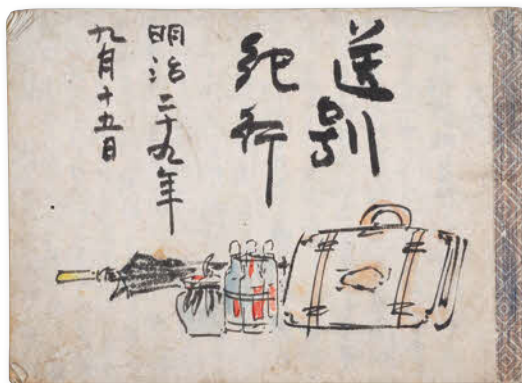 送別
紀行
明治二十九年
九月十五日